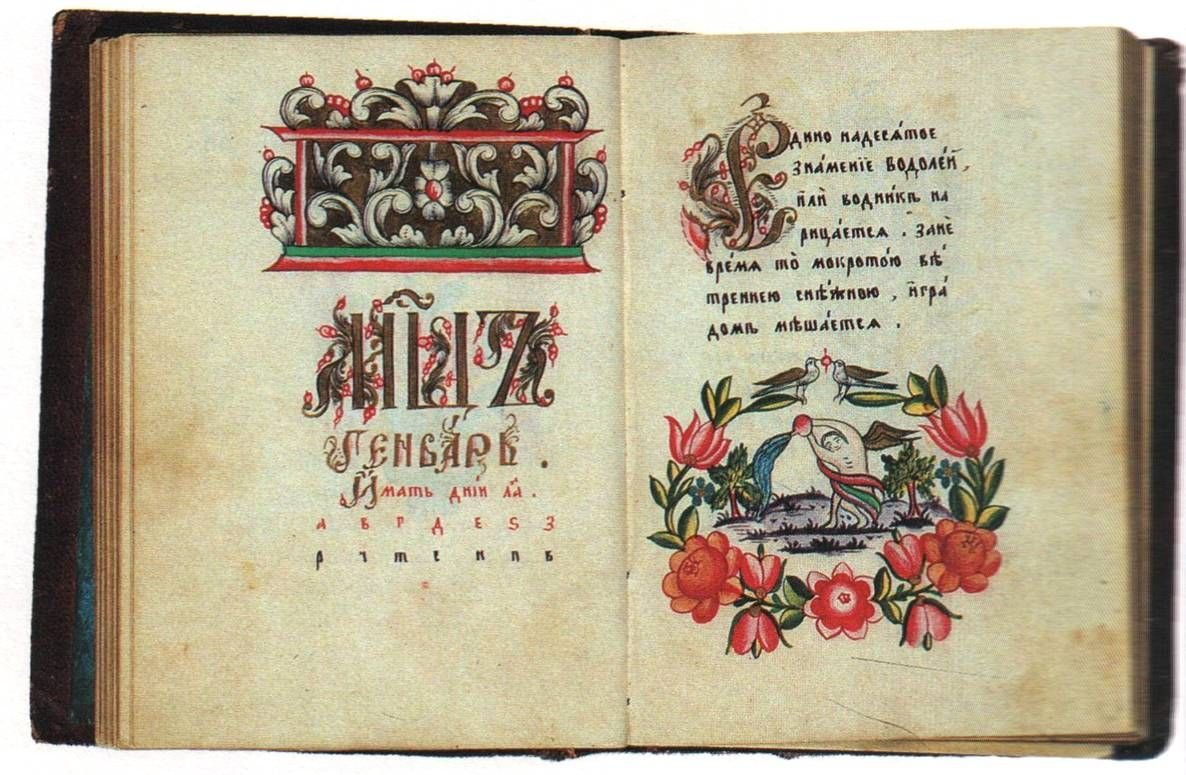 Мц҃ъ
Генва́рь .
И҆мать дні́и л҃а .
а в г д е ѕ з
Е҆дино надеся́тое
зна́менїе водоле́й ,
и҆лѝ водни́къ на
рица́ется . зане́
вре́мя то̀ мокрото́ю вѣ́
треннею снѣ́жною , и҆гра́
домъ мѣша́ется .